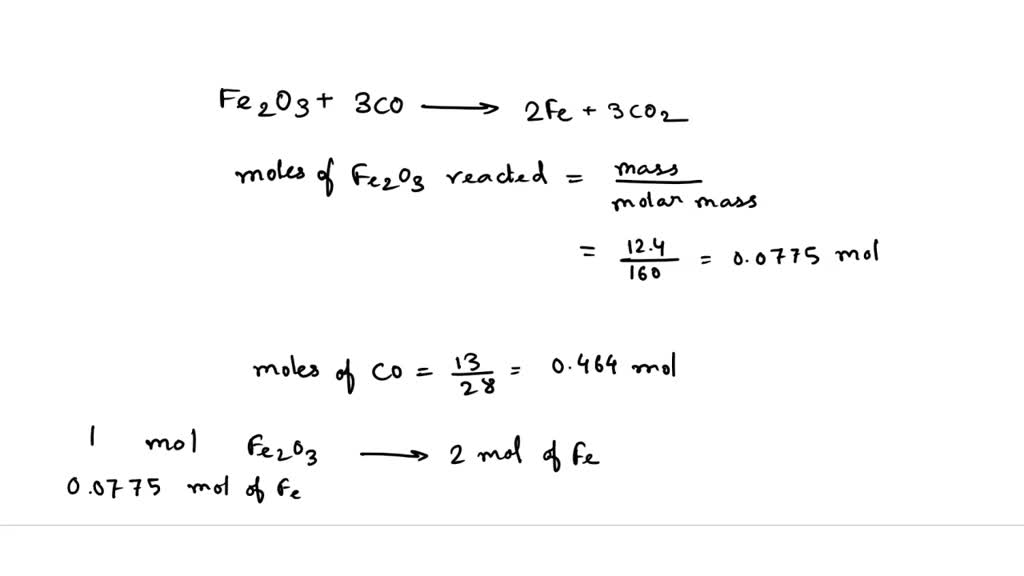 Fe2O3 + 3CO → 2Fe + 3CO2
moles of Fe2O3 reacted = mass / molar mass
= 12.4 / 160 = 0.0775 mol
moles of CO = 13 / 28 = 0.464 mol
1 mol Fe2O3 → 2 mol of Fe
0.0775 mol of Fe